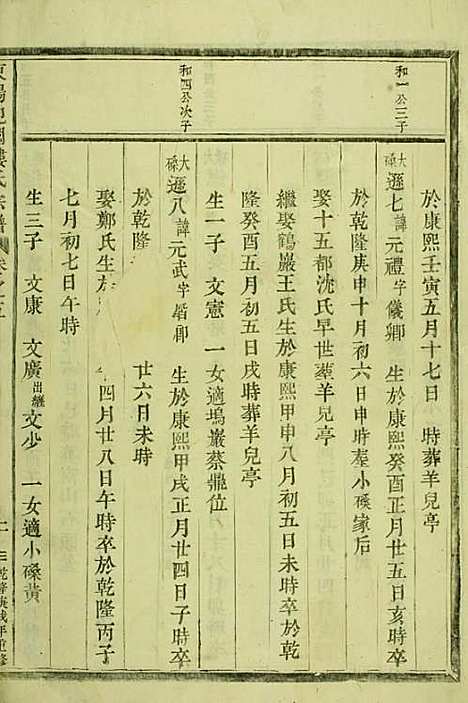 和一公三子
和四公次子
於康熙壬寅五月十七日 時葬羊兒亭
大磉遜七諱元禮字儀卿 生於康熙癸酉正月廿五日亥時
於乾隆庚申十月初六日申時葬小磉家后
娶十五都沈氏早世葬羊兒亭
繼娶鶴巖王氏生於康熙甲申八月初五日未時卒於乾
隆癸酉五月初五日戌時葬羊兒亭
生一子 文憲 一女適塢巖蔡鼎位
大磉遜八諱元武字 卿 生於康熙甲戌正月廿四日子時卒
於乾隆 廿六日未時
娶鄭氏生於 四月廿八日午時卒於乾隆丙子
七月初七日午時
生三子 文康 文廣出繼 文少 一女適小磉黃
乾隆庚戌年重修